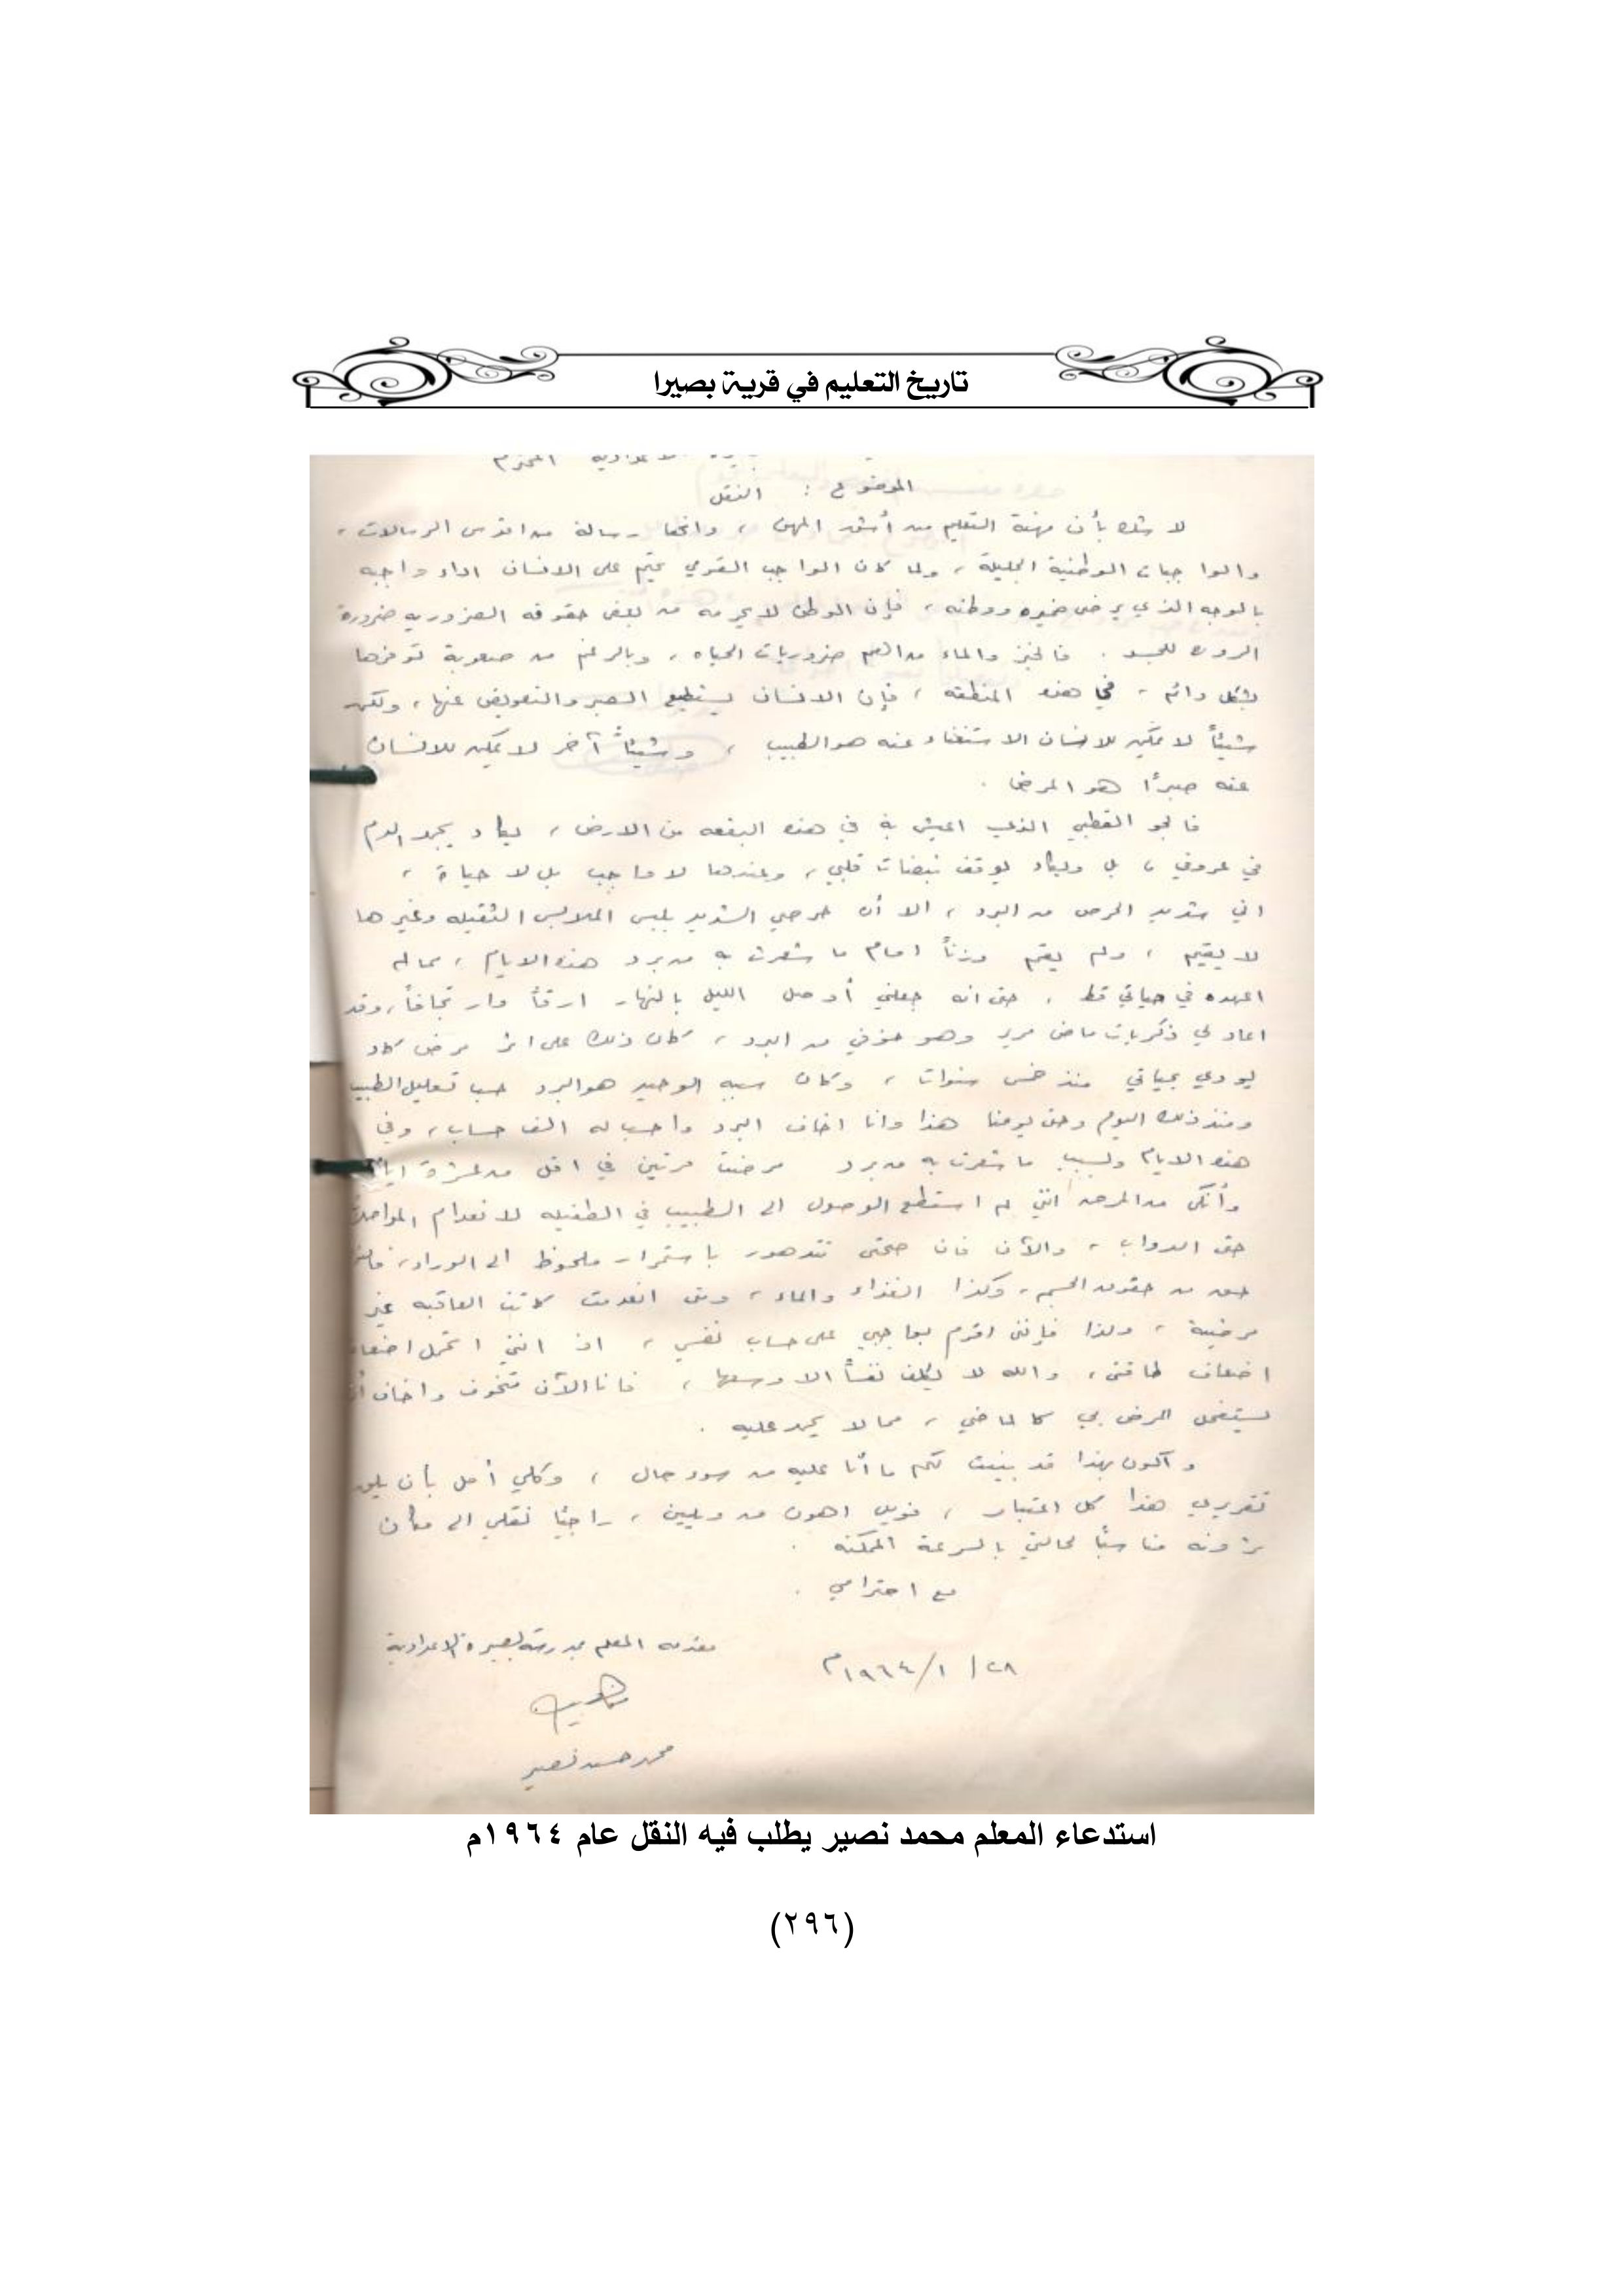 تاريخ التعليم في قرية بصيرا
الاعدادية المحترم
الموضوع : النقل
لا شك بأن مهنة التعليم من أشق المهن ، وانها رسالة من اقدس الرسالات ،
والواجبات الوطنية الجليلة ، ولما كان الواجب القومي يحتم على الانسان اداء واجبه
بالوجه الذي يرضي ضميره ووطنه ، فإن الوطن لا يحرمه من بعض حقوقه الضروريه ضرورة
الروح للجسد . فالخبز والماء من اهم ضروريات الحياه ، وبالرغم من صعوبة توفرها
بشكل دائم ، في هذه المنطقه ، فإن الانسان يستطيع الصبر والتعويض عنها ، ولكن
شيئاً لا يمكن للانسان الاستغناء عنه هو الطبيب ، وشيئاً آخر لا يمكن للانسان
عنه صبرًا هو المرض .
فالجو القطبي الذي اعيش به في هذه البقعه من الارض ، يكاد يجمد الدم
في عروقي ، بل ويكاد يوقف نبضات قلبي ، وعندها لا واجب بل لا حياة ،
اني شديد الحرص من البرد ، الا أن حرصي الشديد بلبس الملابس الثقيله وغيرها
لا يقيم ، ولم يقم وزناً امام ما شعرت به من برد هذه الايام ، مما لم
اعهده في حياتي قط ، حتى انه جعلني أوصل الليل بالنهار ارقاً وارتجافاً ، وقد
اعاد لي ذكريات ماض مرير وهو خوفي من البرد ، كان ذلك على اثر مرض كاد
يودي بحياتي منذ خمس سنوات ، وكان سببه الوحيد هو البرد حسب تعليل الطبيب
ومنذ ذلك اليوم وحتى يومنا هذا وانا اخاف البرد واحسب له الف حساب ، وفي
هذه الايام وبسبب ما شعرت به من برد مرضت مرتين في اقل من عشرة ايام
وأنكى من المرض انني لم استطع الوصول الى الطبيب في الطفيله لانعدام المواصلات
حتى الدواب ، والآن فان صحتي تتدهور باستمرار ملحوظ الى الوراء ،
حق من حقوق الجسم ، وكذا الغذاء والماء ، ومتى انعدمت كانت العاقبه غير
مرضية ، ولذا فإنني اقوم بواجبي على حساب نفسي ، اذ انني اتحمل اضعاف
اضعاف طاقتي ، والله لا يكلف نفساً الا وسعها ، فانا الآن متخوف واخاف أن
يستفحل المرض بي كالماضي ، مما لا يحمد عليه .
واكون بهذا قد بينت لكم ما أنا عليه من سوء حال ، وكلي أمل بأن يلقى
تقريري هذا كل اعتبار ، فويل اهون من ويلين ، راجيًا نقلي الى مكان
ترونه مناسبًا لحالتي بالسرعة الممكنه .
مع احترامي .
مقدمه المعلم بمدرسة بصيره الاعدادية
٢٨/١/١٩٦٤م
محمد حسن نصير
استدعاء المعلم محمد نصير يطلب فيه النقل عام ١٩٦٤م
(٢٩٦)